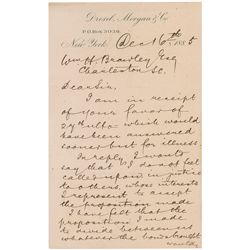 Drexel, Morgan & Co.
P.O. Box 3036.
New York Dec 16th 1885
Wm H. Brawley Esq
Charleston SC.
Dear Sir,
I am in receipt
of your favor of
27th ulto which would
have been answered
sooner but for illness.
In reply I want to
say that I do not feel
called upon in justice
to others, whose interests
I represent to accept
the proposition made
I have felt that the
proposition I made
to divide between us
whatever the bonds brought